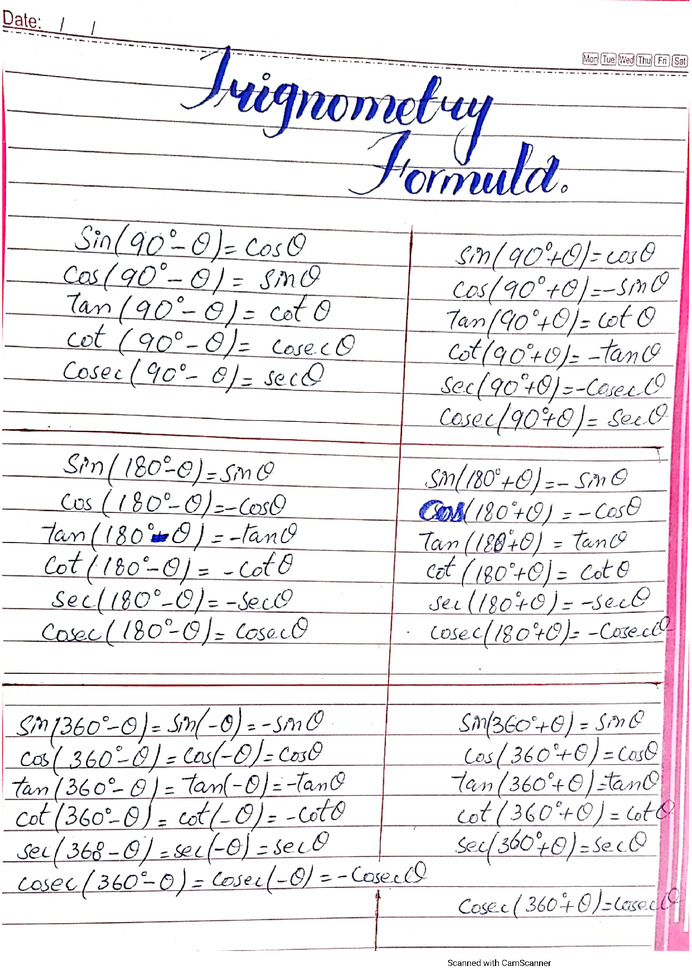 Date: / /
Mon Tue Wed Thu Fri Sat
Trignometry
Formula.
Sin(90°-θ)=cosθ
cos(90°-θ)= sinθ
Tan(90°-θ)= cotθ
cot (90°-θ)= cosecθ
Cosec(90°-θ)= secθ
sin(90°+θ)=cosθ
cos(90°+θ)=-sinθ
Tan(90°+θ)=cotθ
Cot(90°+θ)=-tanθ
sec(90°+θ)=-cosecθ
Cosec(90°+θ)= secθ
Sin(180°-θ)=sinθ
Cos (180°-θ)=-cosθ
tan(180°-θ)=-tanθ
Cot(180°-θ)= -cotθ
sec(180°-θ)=-secθ
Cosec(180°-θ)= cosecθ
Sin(180°+θ)=- sinθ
Cos(180°+θ) = -cosθ
Tan(180°+θ) = tanθ
cot (180°+θ)= cotθ
sec(180°+θ)=-secθ
cosec(180°+θ)= -cosecθ
Sin(360°-θ)=Sin(-θ)=-sinθ
cos(360°-θ)=cos(-θ)=cosθ
tan(360°-θ)= Tan(-θ)=-tanθ
cot(360°-θ)= cot(-θ)= -cotθ
sec(368-θ)=sec(-θ)=secθ
cosec(360°-θ)=cosec(-θ)=-cosecθ
Sin(360°+θ)=sinθ
Cos(360°+θ)=cosθ
Tan(360°+θ)=tanθ
cot(360°+θ)=cotθ
sec(360°+θ)=secθ
Cosec(360°+θ)=cosecθ
Scanned with CamScanner